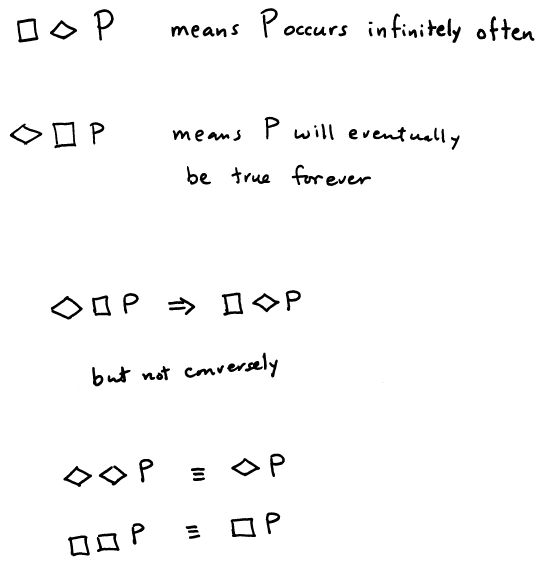 □ ◇ P means P occurs infinitely often
◇ □ P means P will eventually
be true forever
◇ □ P ⇒ □ ◇ P
but not conversely
◇ ◇ P ≡ ◇ P
□ □ P ≡ □ P